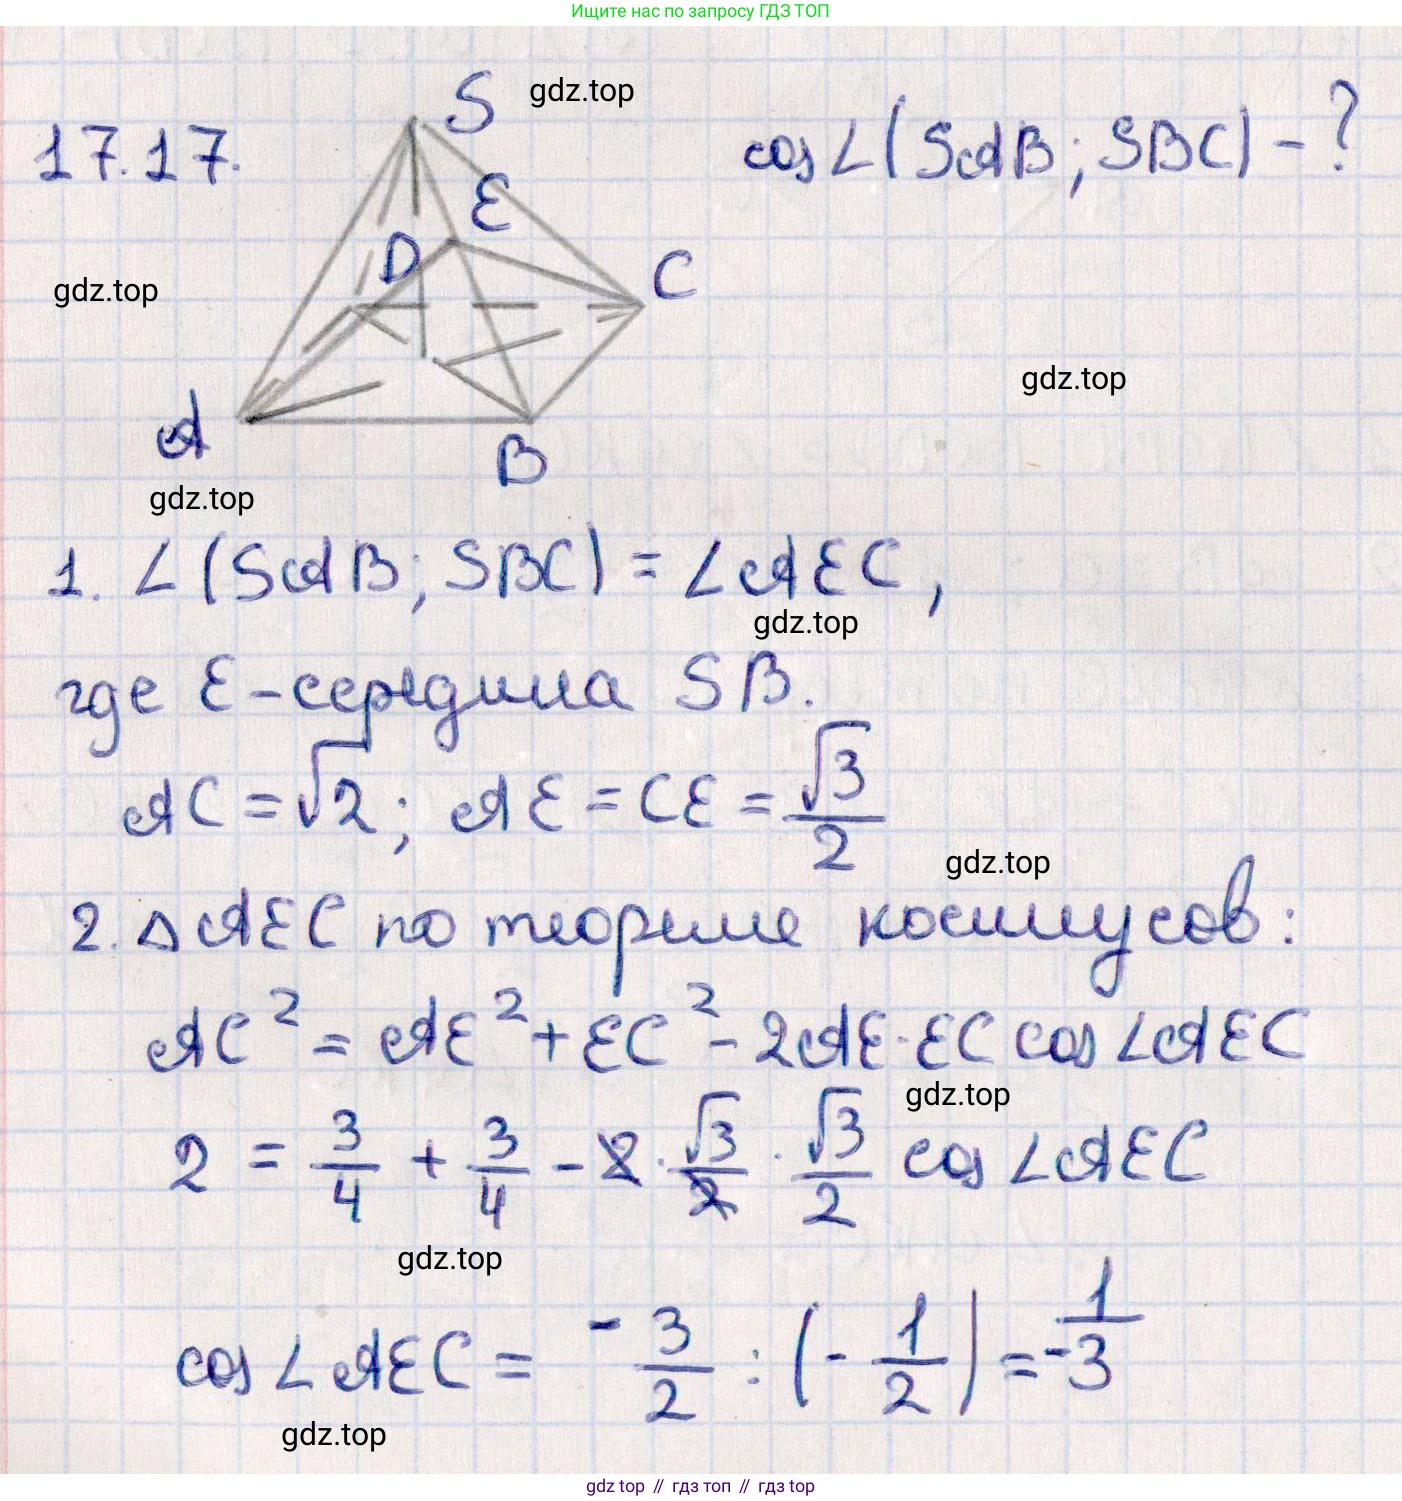 Ищите нас по запросу ГДЗ ТОП
17.17.
S
gdz.top
cos∠(SAB; SBC) - ?
E
D
C
gdz.top
gdz.top
A
B
gdz.top
1. ∠(SAB; SBC) = ∠AEC,
gdz.top
где E - середина SB.
AC = √2; AE = CE = √3/2
gdz.top
2. △AEC по теореме косинусов:
AC² = AE² + EC² - 2AE·EC cos∠AEC
gdz.top
2 = 3/4 + 3/4 - 2 · √3/2 · √3/2 cos∠AEC
gdz.top
cos∠AEC = -3/2 : (-1/2) = -1/3
gdz.top
gdz top // гдз топ // gdz top